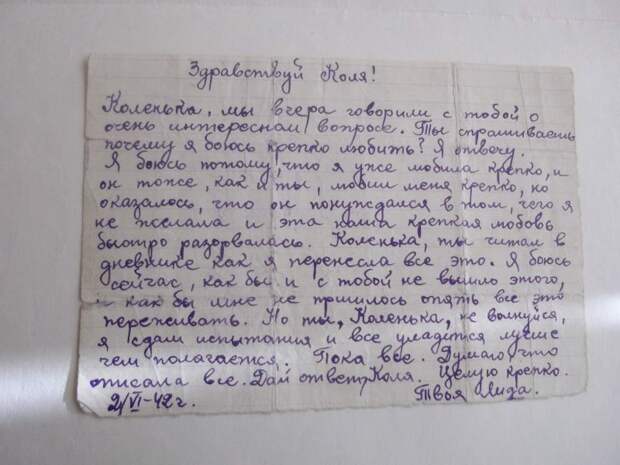 Здравствуй Коля!
Коленька, мы вчера говорили с тобой о
очень интересном вопросе. Ты спрашиваешь
почему я боюсь крепко любить? Я отвечу.
Я боюсь потому, что я уже любила крепко, и
он тоже, как и ты, любил меня крепко, но
оказалось, что он понуждался в том, чего я
не желала и эта наша крепкая любовь
быстро разорвалась. Коленька, ты читал в
дневнике как я перенесла все это. Я боюсь
сейчас, как бы и с тобой не вышло этого,
и как бы мне не пришлось опять все это
переживать. Но ты, Коленька, не волнуйся,
я сдам испытания и все уладится лучше
чем полагается. Пока все. Думаю что
описала все. Дай ответ, Коля. Целую крепко.
2/VI-42 г. Твоя Лида.